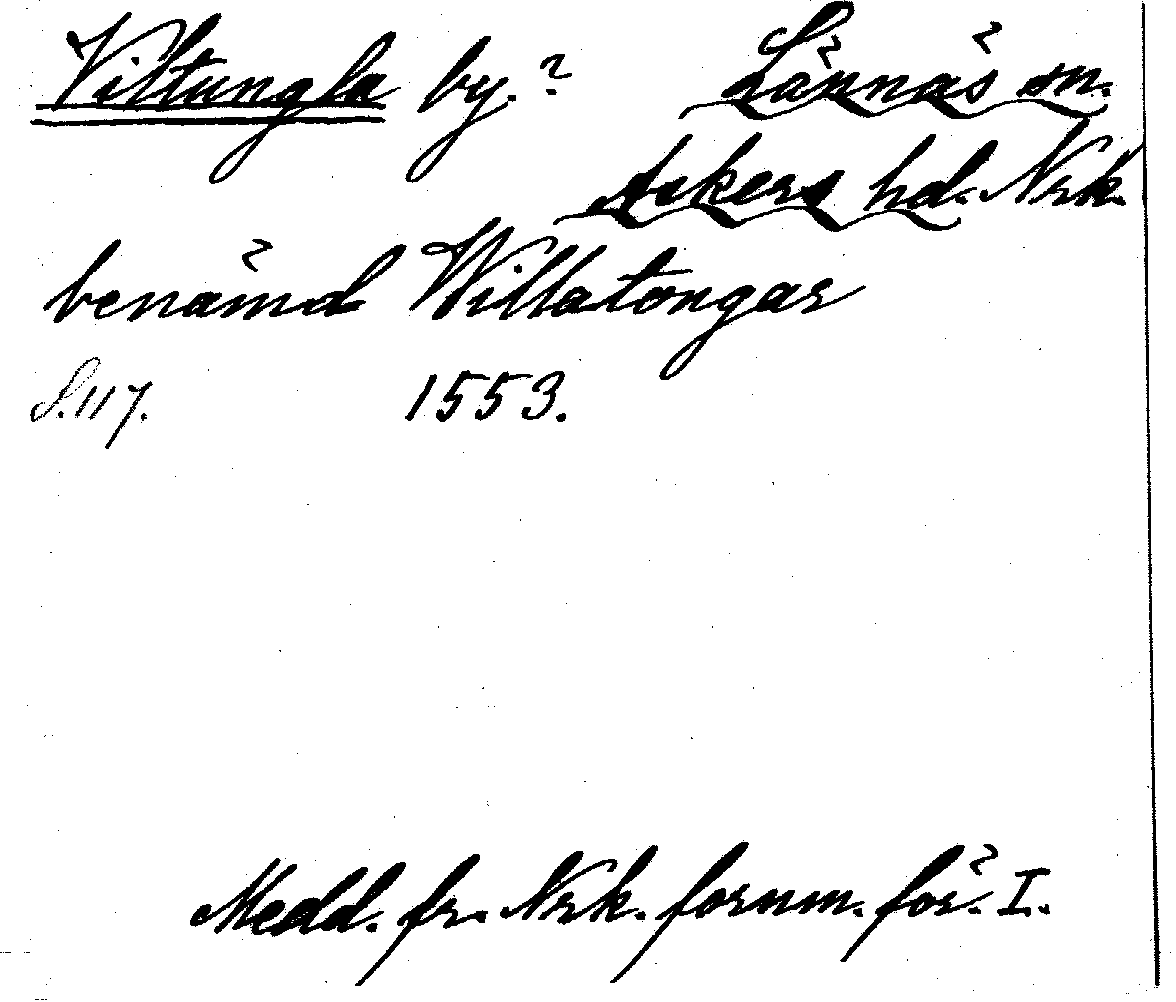 Viltungla by.? Lännäs sn.
Askers hd. Nrk.
benämd Willatongar
S. 117. 1553.
Medd. fr. Nrk. fornm. för. I.